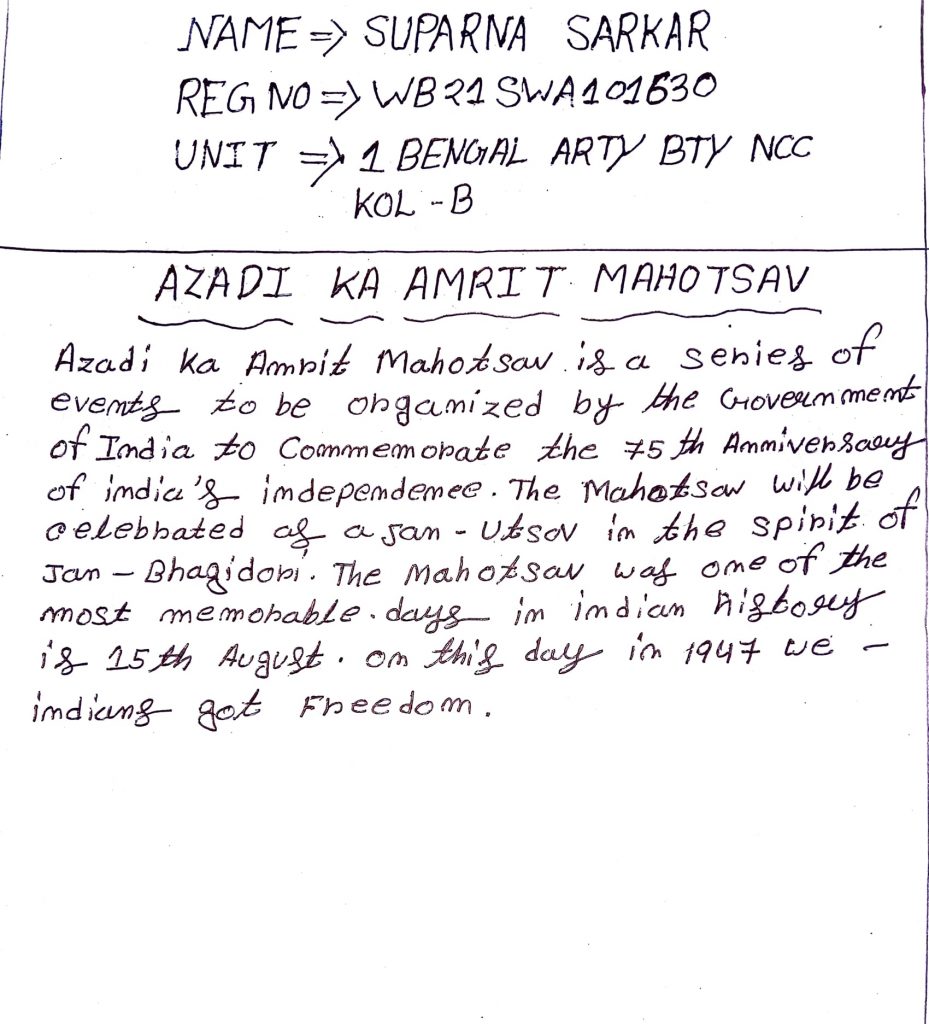 NAME => SUPARNA SARKAR
REG NO => WB21SWA101630
UNIT => 1 BENGAL ARTY BTY NCC
KOL - B
AZADI KA AMRIT MAHOTSAV
Azadi Ka Amrit Mahotsav is a series of
events to be organized by the Government
of India to Commemorate the 75th Anniversary
of india's independence. The Mahotsav will be
celebrated as a Jan - Utsov in the spirit of
Jan - Bhagidori. The Mahotsav was one of the
most memorable. days in indian history
is 15th August. on this day in 1947 we -
indians got Freedom.